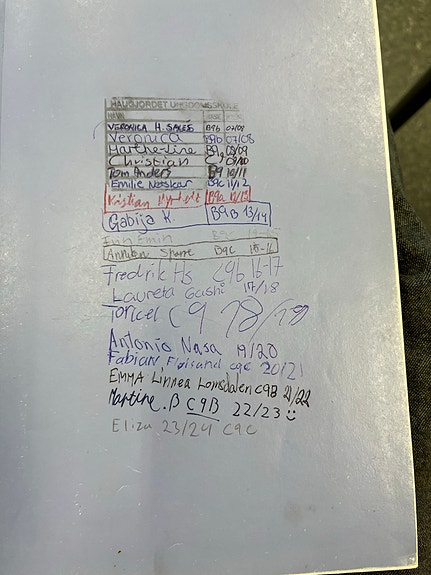 HAUGJORDET UNGDOMSSKOLE
NAVN
VERONICA H. SALES B9b 07/08
Veronica B9b 07/08
Marthe-Line B9 08/09
Christian C9 09/10
Tom Anders B9 10/11
Emilie Noskar B9c 11/12
Kristian B9a 12/13
Gabija K. B9B 13/14
B9c
Anniken Sparre B9C 15-16
Fredrik Hs C9b 16-17
Laureta Gashi 17/18
C9 18/19
Antonio Nasa 19/20
Fabian Fløisand c9c 20/21
EMMA Linnea Lomsdalen C9B 21/22
Martine .B C9B 22/23 :)
Eliza 23/24 C9C